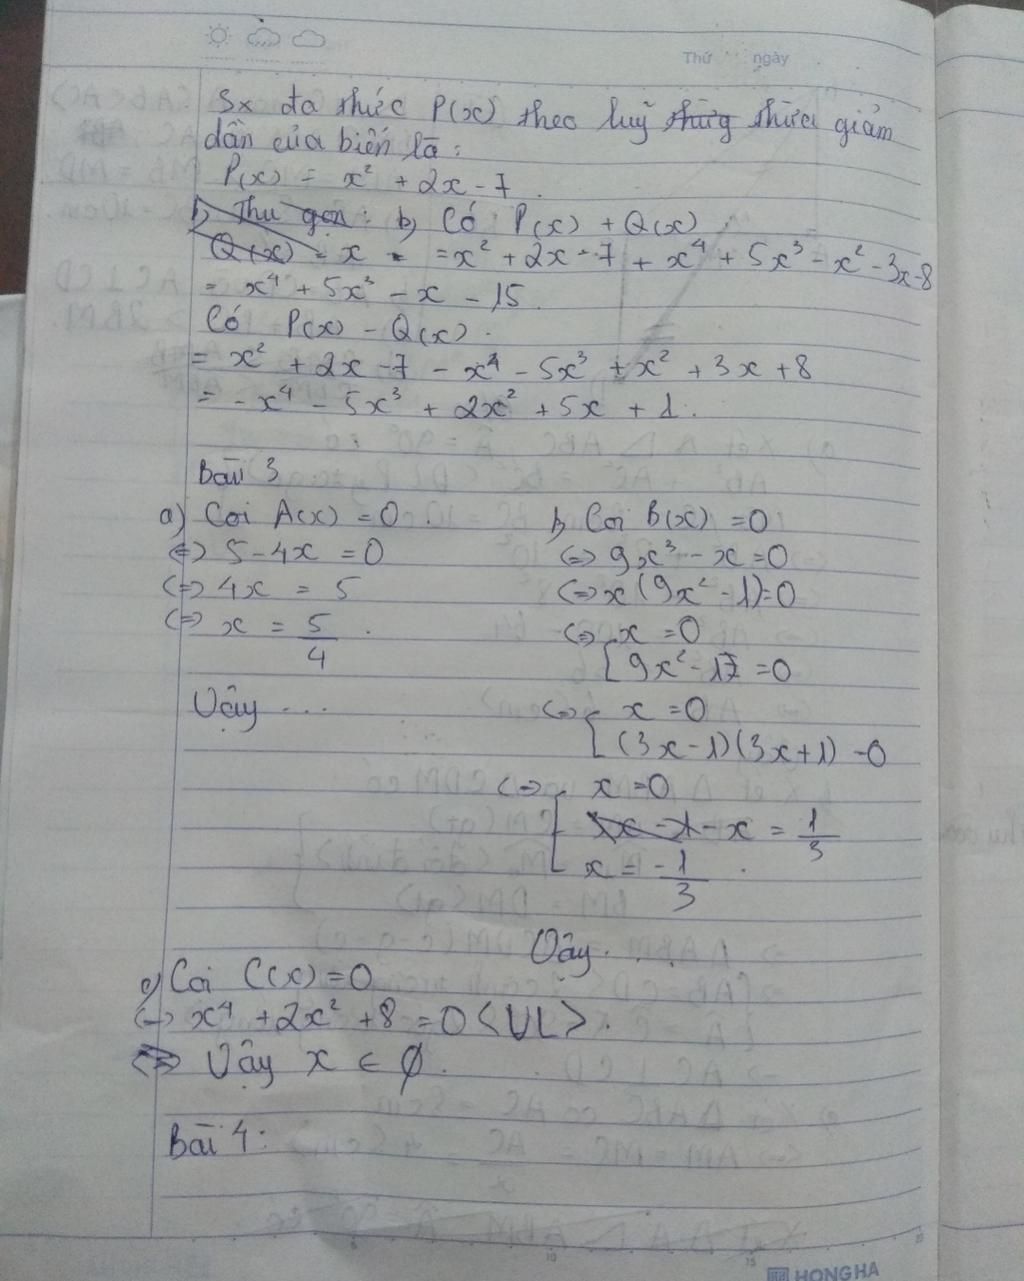 Thứ ngày
Sx đa thức P(x) theo luỹ thừng thừa giảm
dần của biến là:
P(x) = x² + 2x - 7.
b, Thu gọn: b, Có P(x) + Q(x)
Q(x) = x = = x² + 2x - 7 + x⁴ + 5x³ - x² - 3x - 8
= x⁴ + 5x³ - x - 15
Có P(x) - Q(x).
= x² + 2x - 7 - x⁴ - 5x³ + x² + 3x + 8
= -x⁴ - 5x³ + 2x² + 5x + 1.
Bài 3
a) Coi A(x) = 0.
<=> 5 - 4x = 0
<=> 4x = 5
<=> x = 5/4.
Vậy ...
b, Coi B(x) = 0
<=> 9x³ - x = 0
<=> x(9x² - 1) = 0
<=> [ x = 0
[ 9x² - 1 = 0
<=> [ x = 0
[ (3x - 1)(3x + 1) = 0
<=> [ x = 0
[ x = 1/3
[ x = -1/3.
Vậy....
c) Coi C(x) = 0
<=> x⁴ + 2x² + 8 = 0 <VL>.
<=> Vậy x ∈ ∅.
Bài 4:
HONG HA